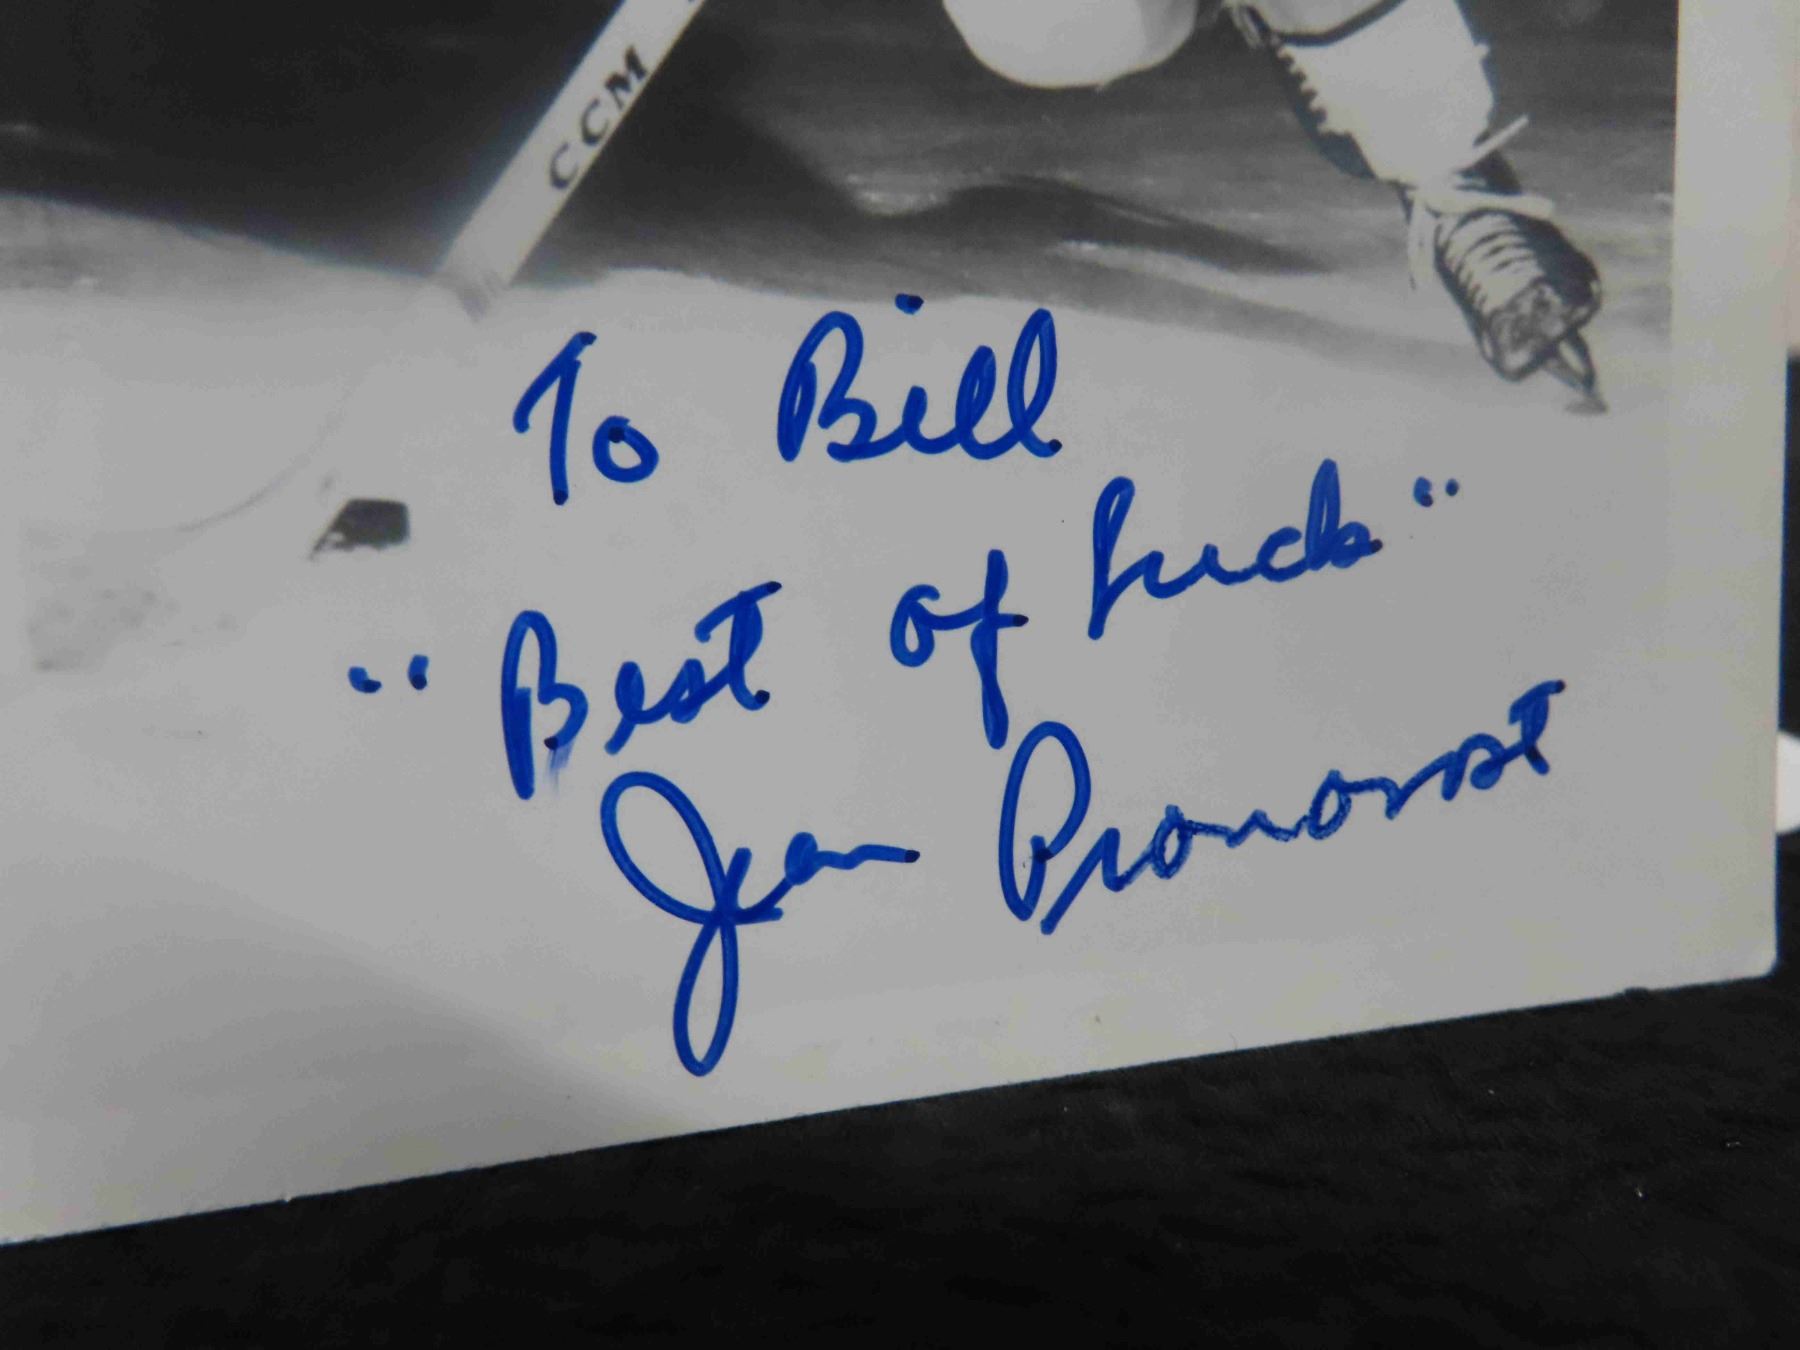 CCM
To Bill
"Best of Luck"
Jean Pronovost